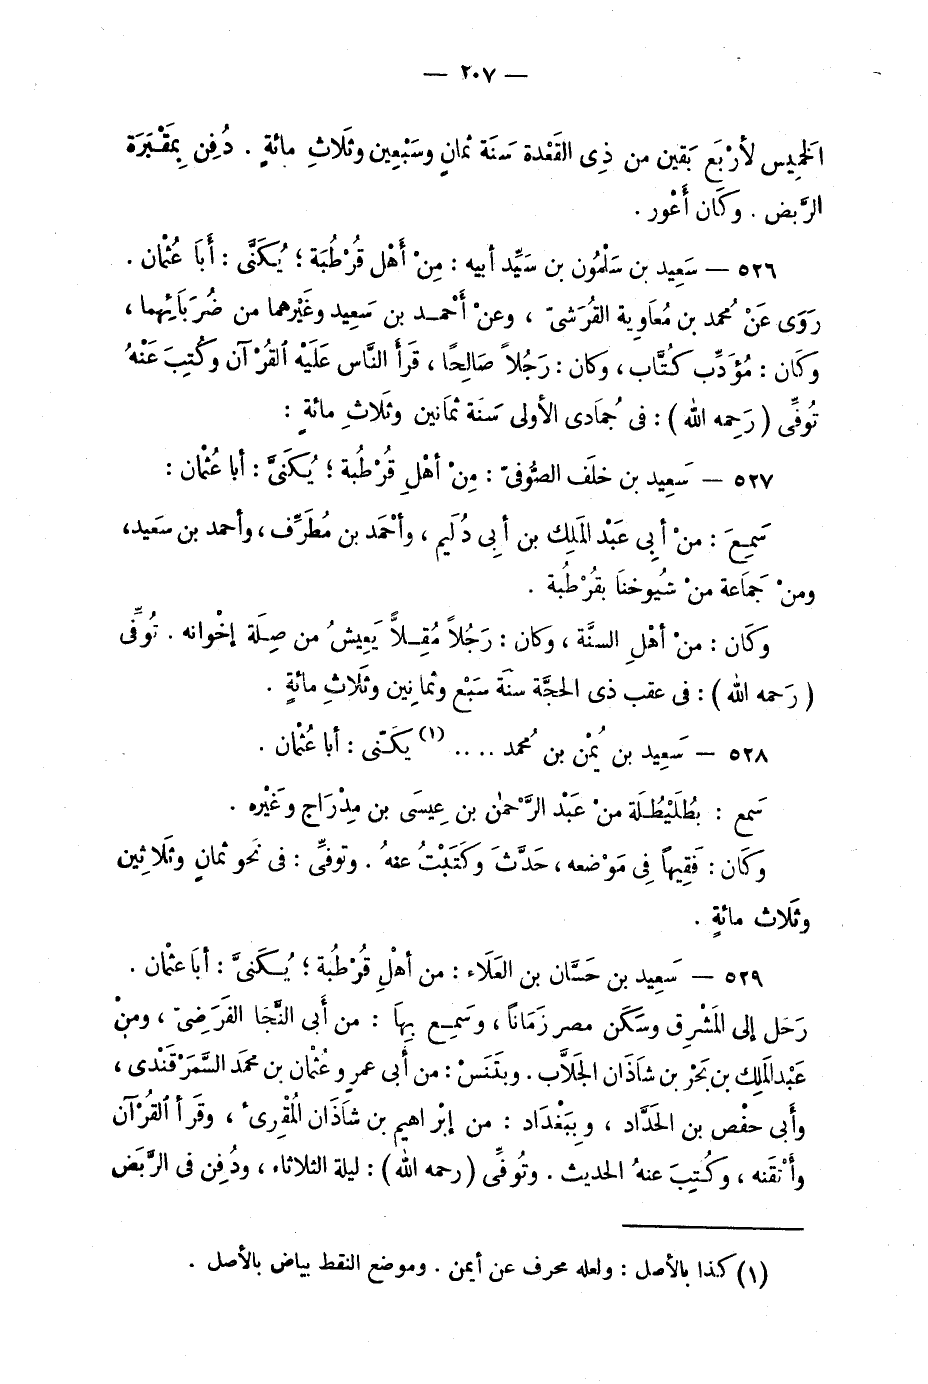 — ٢٠٧ —
الخَمِيس لأرْبَع بَقين من ذِى القَعْدة سَنَة ثمانٍ وسَبْعِين وثَلَاثِ مائةٍ . دُفِن بِمَقْبَرَة
الرَّبض . وكَان أَعْور .
٥٢٦ — سَعِيد بن سَلْمُون بن سَيِّد أبيه : مِنْ أَهْل قُرْطُبَة ؛ يُكَنَّى : أَبَا عُثْمان .
رَوَى عَنْ مُحمد بن مُعَاوية القُرَشىّ ، وعنْ أَحْمد بن سَعِيد وغَيْرهما من ضُرَبَائهما ،
وكَان : مُؤَدِّب كُتَّاب ، وكان : رَجُلاً صَالِحًا ، قَرأَ النَّاس عَلَيْه القُرْآن وكُتِبَ عَنْهُ
تُوفِّى ( رَحِمه الله ) : فى جُمَادى الأولى سَنَة ثمَانين وثَلَاثِ مائةٍ :
٥٢٧ — سَعِيد بن خلَف الصُّوفىّ : مِنْ أهْلِ قُرْطُبة ؛ يُكَنىَّ : أبا عُثْمان :
سَمِعَ : منْ أبِى عَبْد المَلِك بن أبِى دُلَيم ، وأحْمَد بن مُطَرِّف ، وأحمد بن سَعِيد،
ومنْ جَمَاعة منْ شيُوخنَا بقُرْطُبة .
وكَان : منْ أهْلِ السنَّة ، وكان : رَجُلاً مُقِلاًّ يَعِيشُ من صِلَة إخْوانه . تُوفِّى
( رَحمه الله ) : فى عقب ذى الحجَّة سنَة سَبْع وثمانِين وثَلاثِ مائةٍ .
٥٢٨ — سَعِيد بن يُمْن بن مُحمد .... (١) يَكَنّى : أبا عُثْمان .
سَمع : بُطَلَيْطُلَة منْ عَبْد الرَّحْمٰن بن عِيسَى بن مِدْرَاج وغَيْره .
وكَان : فَقِيهاً فِى مَوْضعه ، حَدَّثَ وكَتَبْتُ عنهُ . وتوفِّى : فى نَحو ثمانٍ وثَلاثِين
وثَلاث مائةٍ .
٥٢٩ — سَعِيد بن حَسَّان بن العَلَاء : من أهْلِ قُرْطُبة ؛ يُكَنىَّ : أبَا عثْمان .
رَحَل إلى المَشْرِق وسَكَن مصر زَمَاناً ، وسَمِع بِهَا : من أَبى النَّجَا الفَرَضِىّ ، ومنْ
عَبْد المَلِك بن بَحْر بن شَاذَان الجَلاَّب . وبتَنَسْ : من أَبى عمرٍ وعُثْمان بن محمَد السَّمَرْقَنْدى ،
وأبى حفْص بن الحَدَّاد ، وبِبَغْدَاد : من إبْراهيم بن شاَذَان المُقْرِىء ، وقَرأ القُرْآن
وأتْقنَه ، وكُتِبَ عنهُ الحديث . وتُوفِّى ( رحمه الله ) : ليلة الثلاثاء ، ودُفِن فى الرَّبَض
(١) كذا بالأصل : ولعله محرف عن أيمن . وموضع النقط بياض بالأصل .